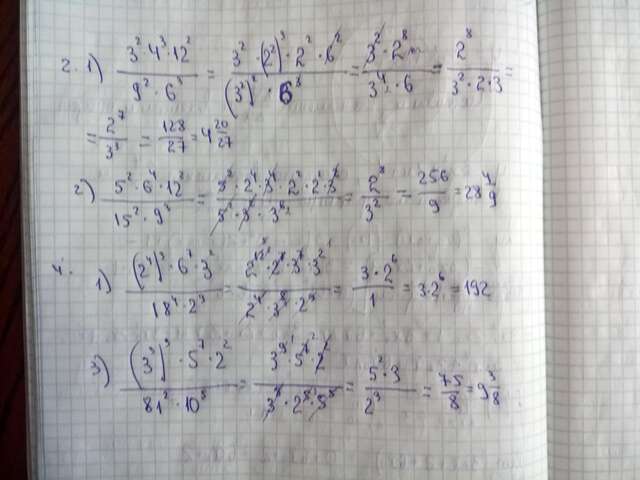 2. 1) (3² · 4³ · 12²)/(9² · 6³) = (3² · (2²)³ · 2² · 6²)/((3²)² · 6³) = (3² · 2⁸)/(3⁴ · 6) = 2⁸/(3² · 2 · 3) =
= 2⁷/3³ = 128/27 = 4 20/27
2) (5² · 6⁴ · 12²)/(15² · 9³) = (5² · 2⁴ · 3⁴ · 2² · 2² · 3²)/(5² · 3² · 3⁶) = 2⁸/3² = 256/9 = 28 4/9
4. 1) ((2⁴)³ · 6⁷ · 3²)/(18⁴ · 2⁹) = (2¹² · 2⁷ · 3⁷ · 3²)/(2⁴ · 3⁸ · 2⁹) = (3 · 2⁶)/1 = 3 · 2⁶ = 192
3) ((3³)³ · 5⁷ · 2²)/(81² · 10⁵) = (3⁹ · 5⁷ · 2²)/(3⁸ · 2⁵ · 5⁵) = (5² · 3)/2³ = 75/8 = 9 3/8